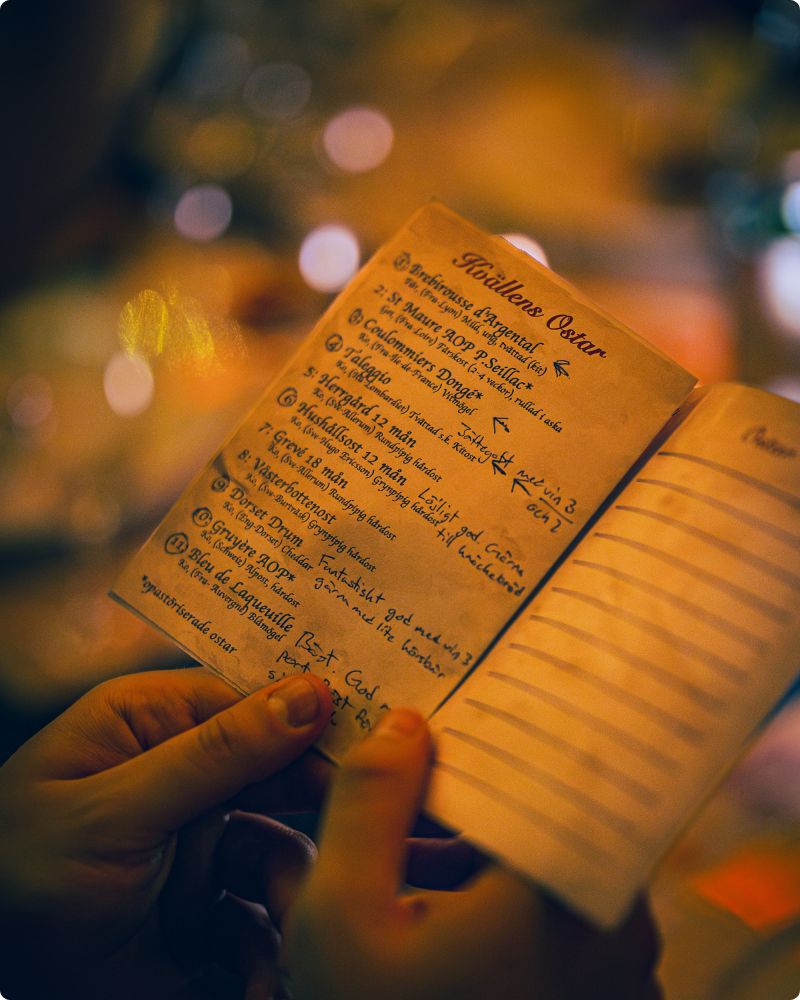 Kvällens Ostar
1: Brebirousse d'Argental
Får, (Fra-Lyon) Mild, ung, tvättad (kit)
2: St Maure AOP P.Seillac*
Get, (Fra-Loire) Färskost (2-4 veckor), rullad i aska
3: Coulommiers Dongé*
Ko, (Fra-Ile de France) Vitmögel
4: Taleggio
Ko, (Ita Lombardiet) Tvättad s.k. Kitost
Jättegott med vin 3
och 2
5: Herrgård 12 mån
Ko, (Sve-Allerum) Rundpipig hårdost
6: Hushållsost 12 mån
Ko, (Sve-Hugo Ericson) Grynpipig hårdost
Löjligt god. Gärna
till knäckebröd
7: Grevé 18 mån
Ko, (Sve-Allerum) Rundpipig hårdost
8: Västerbottenost
Ko, (Sve-Burträsk) Grynpipig hårdost
9: Dorset Drum
Ko, (Eng-Dorset) Cheddar
Fantastiskt god med vin 3
gärna med lite körsbär
10: Gruyère AOP*
Ko, (Schweiz) Alpost, hårdost
11: Bleu de Laqueuille
Ko, (Fra- Auvergne) Blåmögel
Bäst. God
port. Bäst
*opastöriserade ostar